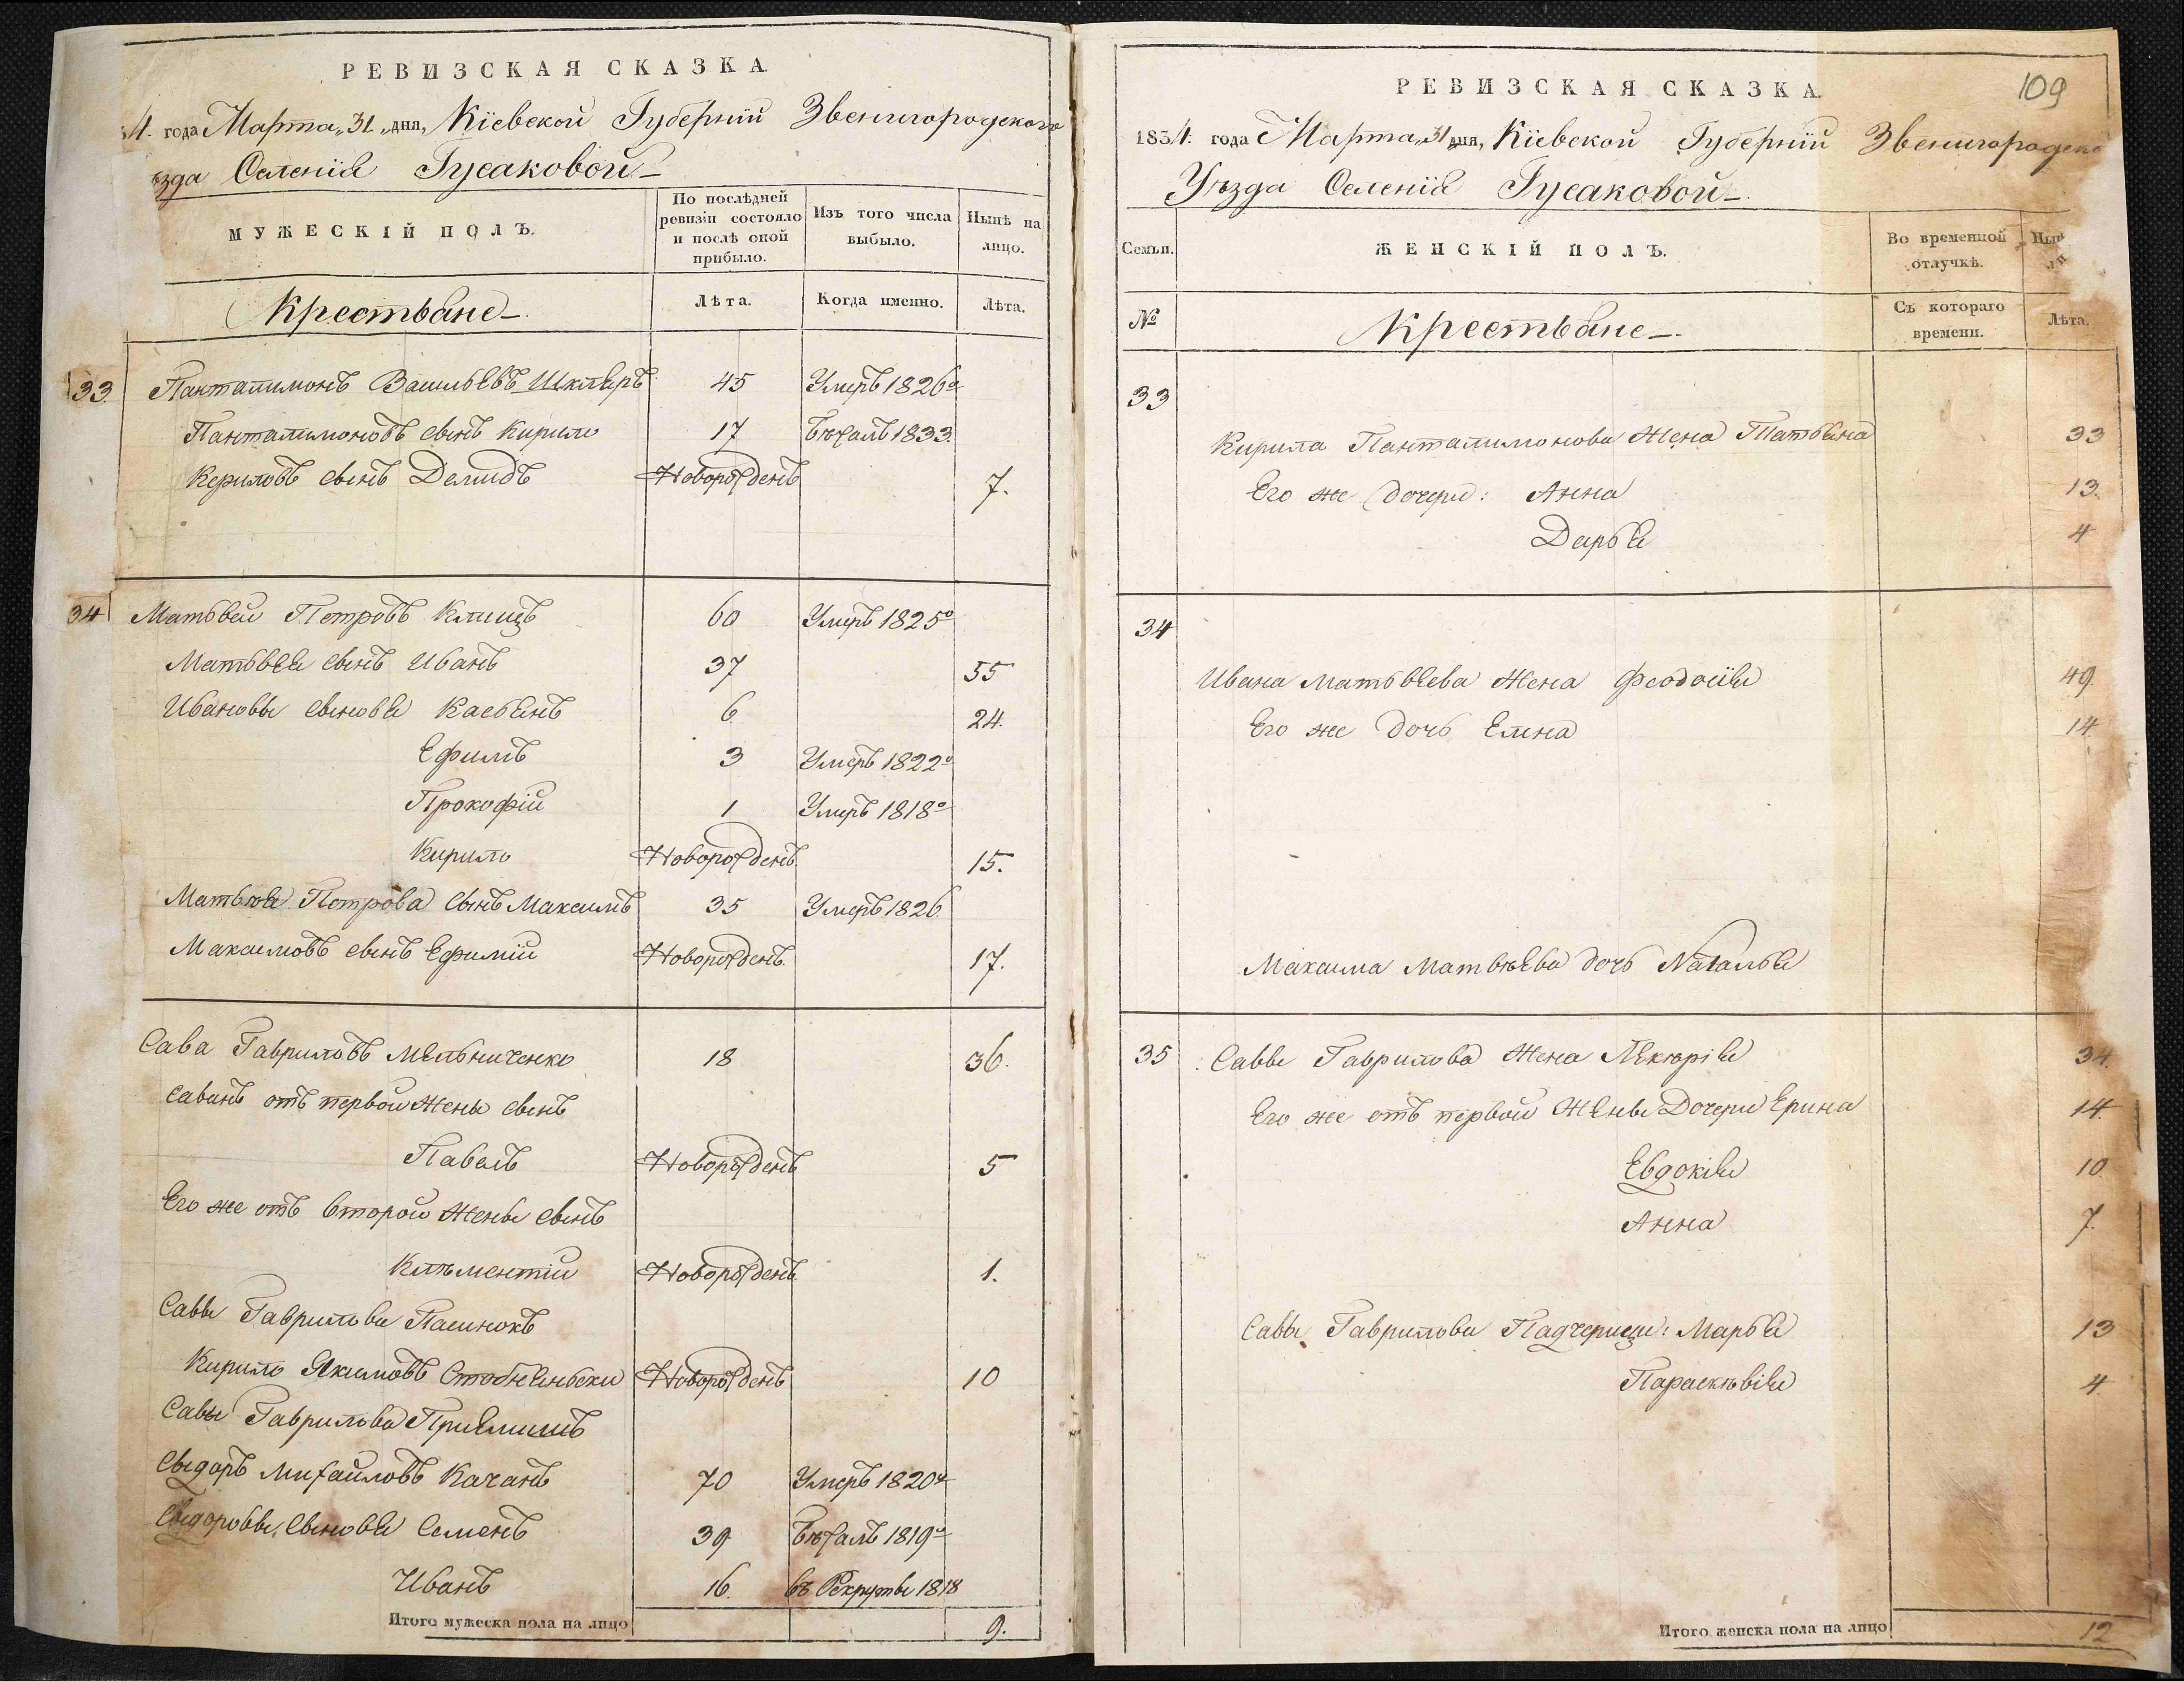 РЕВИЗСКАЯ СКАЗКА
4. года Марта „31„ дня, Кіевской Губерніи Звенигородского
ѣзда Селенія Гусаковой
МУЖЕСКІЙ ПОЛЪ.
По послѣдней ревизіи состояло и послѣ оной прибыло.
Изъ того числа выбыло.
Нынѣ на лицо.
Крестьяне
Лѣта.
Когда именно.
Лѣта.
33 Панталимонъ Васильевъ Шкляръ 45 Умеръ 1826го
Панталимоновъ сынъ Кирило 17 Бѣжалъ 1833.
Кериловъ сынъ Демидъ Новорожденъ 7.
34 Матьвей Петровъ Клищъ 60 Умеръ 1825го
Матьвея сынъ Иванъ 37 55
Ивановы сыновья Касьянъ 6 24.
Ефимъ 3 Умеръ 1822го
Прокофій 1 Умеръ 1818го
Кирило Новорожденъ 15.
Матвѣя Петрова сынъ Максимъ 35 Умеръ 1826.
Максимовъ сынъ Ефимій Новорожденъ. 17.
Сава Гавриловъ Мельниченко 18 36.
Савинъ отъ первой жены сынъ
Павелъ Новорожденъ 5
Его же отъ второй жены сынъ
Клѣментій Новорожденъ. 1.
Саввы Гаврилова Пасинокъ
Кирило Якимовъ Новорожденъ 10
Савы Гаврилова
Сыдоръ Михайловъ Качанъ 70 Умеръ 1820го
Сыдоровы сыновья Семенъ 39 Бѣжалъ 1819го
Иванъ 16. въ Рекруты 1818
Итого мужеска пола на лицо 9.
109
РЕВИЗСКАЯ СКАЗКА
1834. года Марта „31 дня, Кіевской Губерніи Звенигородско
Уѣзда Селенія Гусаковой
Семьи.
ЖЕНСКІЙ ПОЛЪ.
Во временной отлучкѣ.
№
Крестьяне
Съ котораго времени.
Лѣта.
33
Кирила Панталимонова жена Татьяна 33
Его же дочери: Анна 13.
Дарья 4
34
Ивана Матьвеева жена Феодосія 49.
Его же дочь Елена 14.
Максима Матвѣева дочь Наталья
35 Саввы Гаврилова жена 34.
Его же отъ первой жены Дочери Ерина 14.
Евдокія 10
Анна 7.
Савы Гаврилова Падчерицы: Марья 13
Параскѣвія 4
Итого женска пола на лицо 12